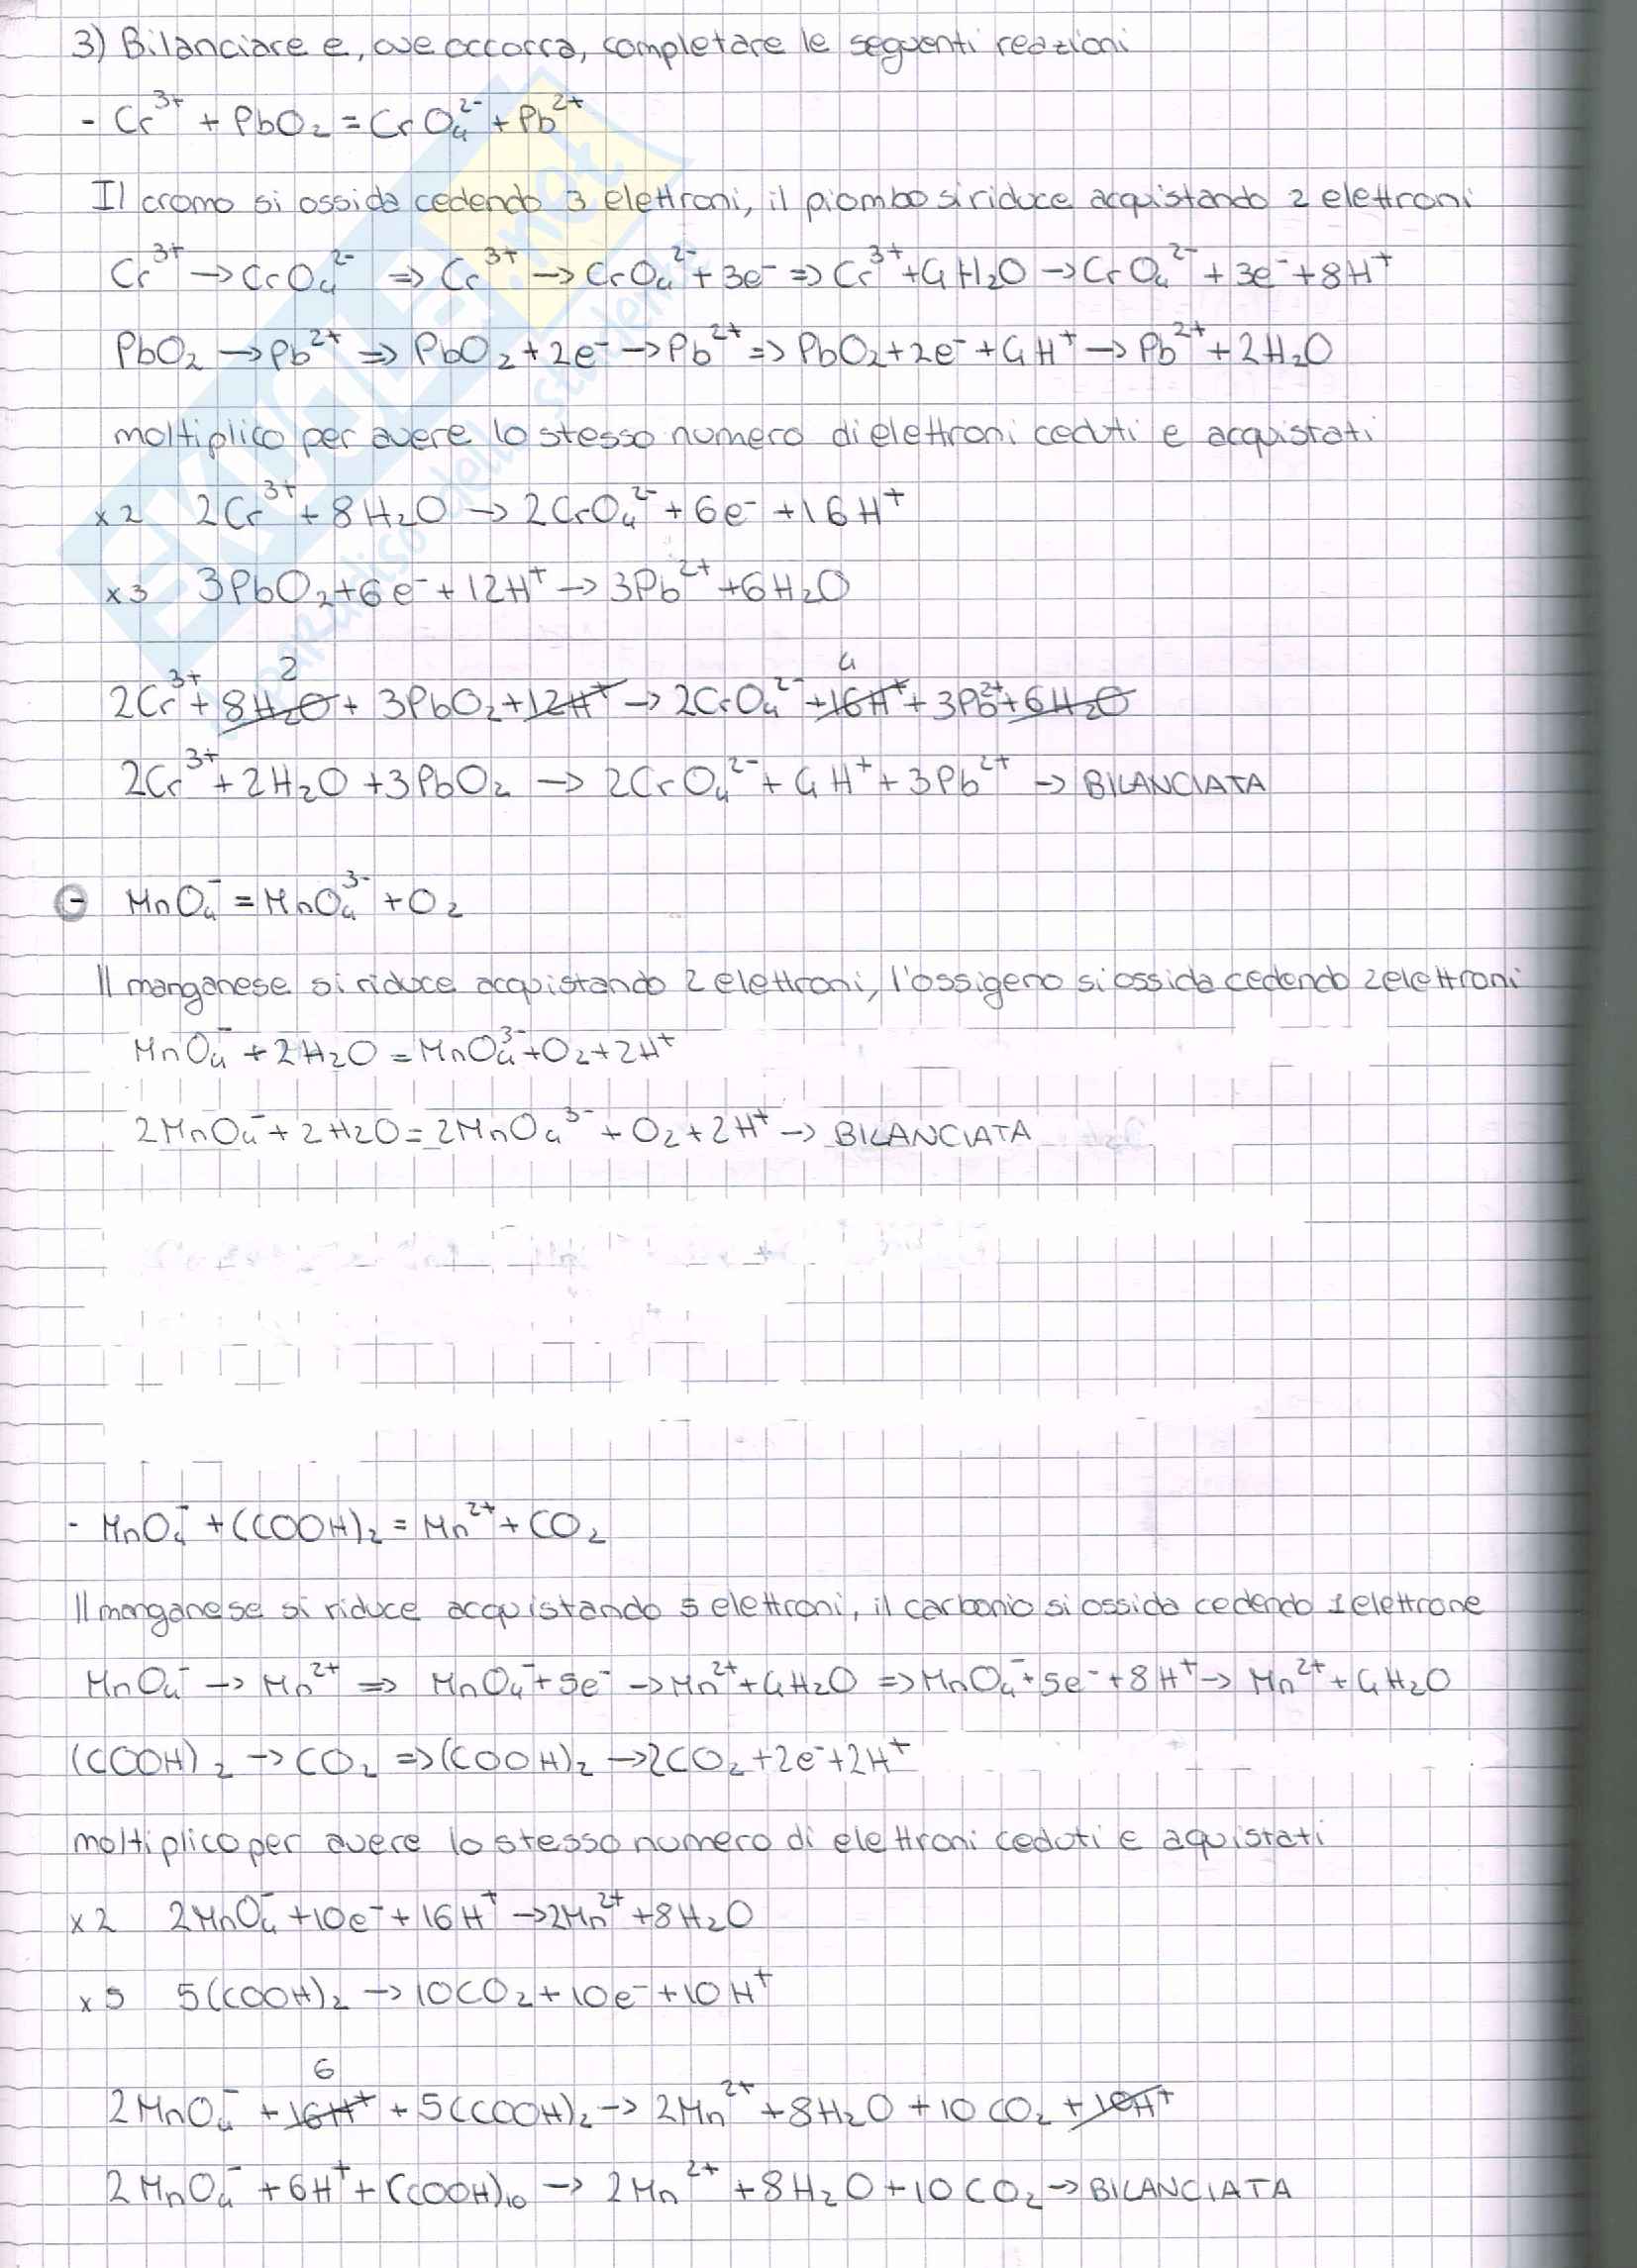 3) Bilanciare e, ove occorra, completare le seguenti reazioni
- Cr³⁺ + PbO₂ = CrO₄²⁻ + Pb²⁺
Il cromo si ossida cedendo 3 elettroni, il piombo si riduce acquistando 2 elettroni
Cr³⁺ → CrO₄²⁻ ⇒ Cr³⁺ → CrO₄²⁻ + 3e⁻ ⇒ Cr³⁺ + 4H₂O → CrO₄²⁻ + 3e⁻ + 8H⁺
PbO₂ → Pb²⁺ ⇒ PbO₂ + 2e⁻ → Pb²⁺ ⇒ PbO₂ + 2e⁻ + 4H⁺ → Pb²⁺ + 2H₂O
moltiplico per avere lo stesso numero di elettroni ceduti e acquistati
x2 2Cr³⁺ + 8H₂O → 2CrO₄²⁻ + 6e⁻ + 16H⁺
x3 3PbO₂ + 6e⁻ + 12H⁺ → 3Pb²⁺ + 6H₂O
2 4
2Cr³⁺ + 8H₂O + 3PbO₂ + 12H⁺ → 2CrO₄²⁻ + 16H⁺ + 3Pb²⁺ + 6H₂O
2Cr³⁺ + 2H₂O + 3PbO₂ → 2CrO₄²⁻ + 4H⁺ + 3Pb²⁺ → BILANCIATA
- MnO₄⁻ = MnO₄³⁻ + O₂
Il manganese si riduce acquistando 2 elettroni, l'ossigeno si ossida cedendo 2 elettroni
MnO₄⁻ + 2H₂O = MnO₄³⁻ + O₂ + 2H⁺
2MnO₄⁻ + 2H₂O = 2MnO₄³⁻ + O₂ + 2H⁺ → BILANCIATA
- MnO₄⁻ + (COOH)₂ = Mn²⁺ + CO₂
Il manganese si riduce acquistando 5 elettroni, il carbonio si ossida cedendo 1 elettrone
MnO₄⁻ → Mn²⁺ ⇒ MnO₄⁻ + 5e⁻ → Mn²⁺ + 4H₂O ⇒ MnO₄⁻ + 5e⁻ + 8H⁺ → Mn²⁺ + 4H₂O
(COOH)₂ → CO₂ ⇒ (COOH)₂ → 2CO₂ + 2e⁻ + 2H⁺
moltiplico per avere lo stesso numero di elettroni ceduti e aquistati
x2 2MnO₄⁻ + 10e⁻ + 16H⁺ → 2Mn²⁺ + 8H₂O
x5 5(COOH)₂ → 10CO₂ + 10e⁻ + 10H⁺
6
2MnO₄⁻ + 16H⁺ + 5(COOH)₂ → 2Mn²⁺ + 8H₂O + 10CO₂ + 10H⁺
2MnO₄⁻ + 6H⁺ + (COOH)₁₀ → 2Mn²⁺ + 8H₂O + 10CO₂ → BILANCIATA